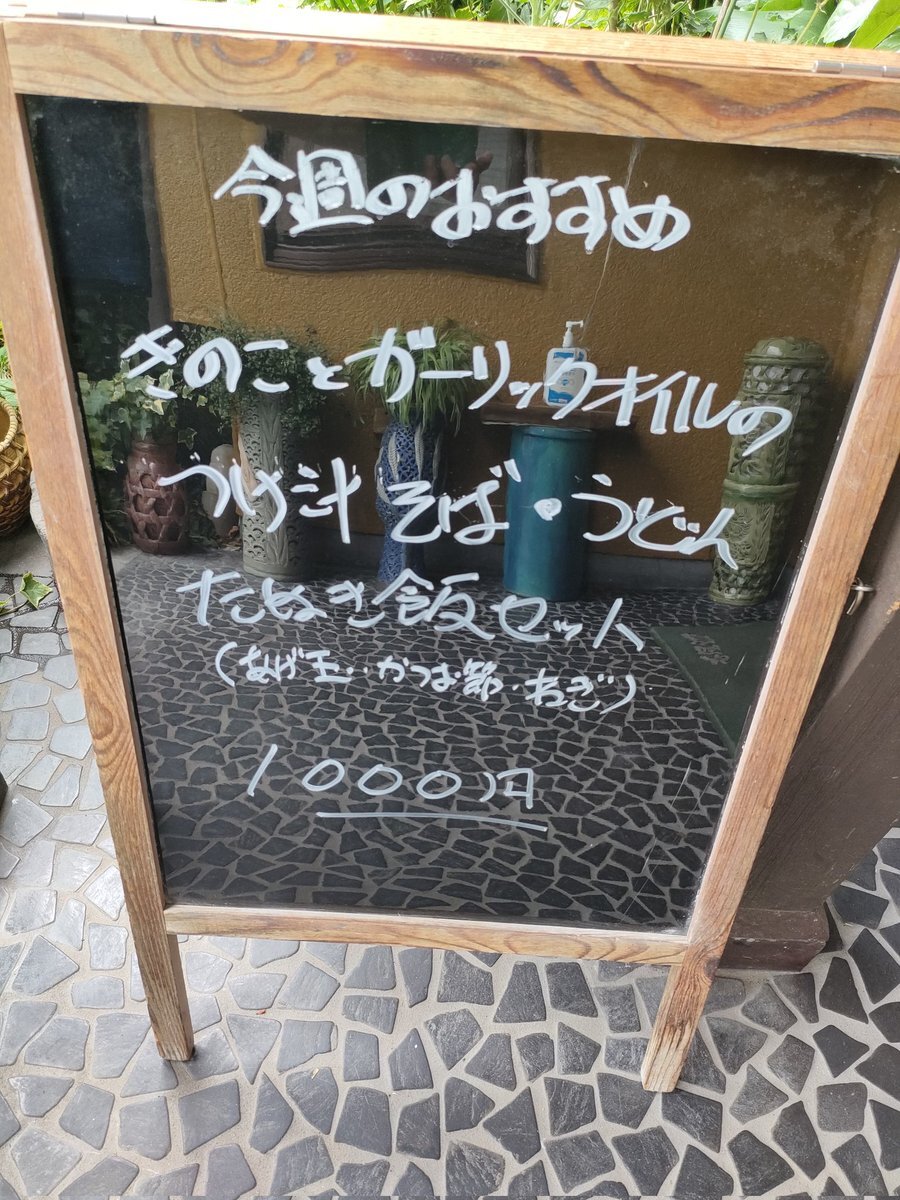 今週のおすすめ
きのことガーリックオイルの
づけ汁そば・うどん
たぬき飯セット
(あげ玉・かつお節・ねぎ)
1000円